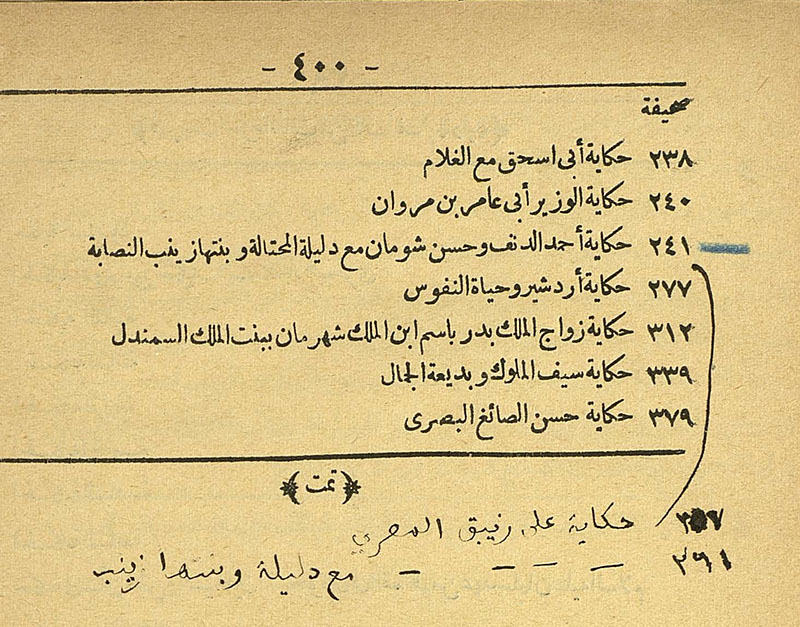 - ٤٠٠ -
صحيفة
٢٣٨ حكاية أبى اسحق مع الغلام
٢٤٠ حكاية الوزير أبى عامر بن مروان
٢٤١ حكاية أحمد الدنف وحسن شومان مع دليلة المحتالة و بنتها زينب النصابة
٢٧٧ حكاية أردشير وحياة النفوس
٣١٢ حكاية زواج الملك بدر باسم ابن الملك شهرمان ببنت الملك السمندل
٣٣٩ حكاية سيف الملوك و بديعة الجمال
٣٧٩ حكاية حسن الصائغ البصرى
تمت
حكاية على زيبق المصري
٣٩١ — — — — مع دليلة و بنتها زينب